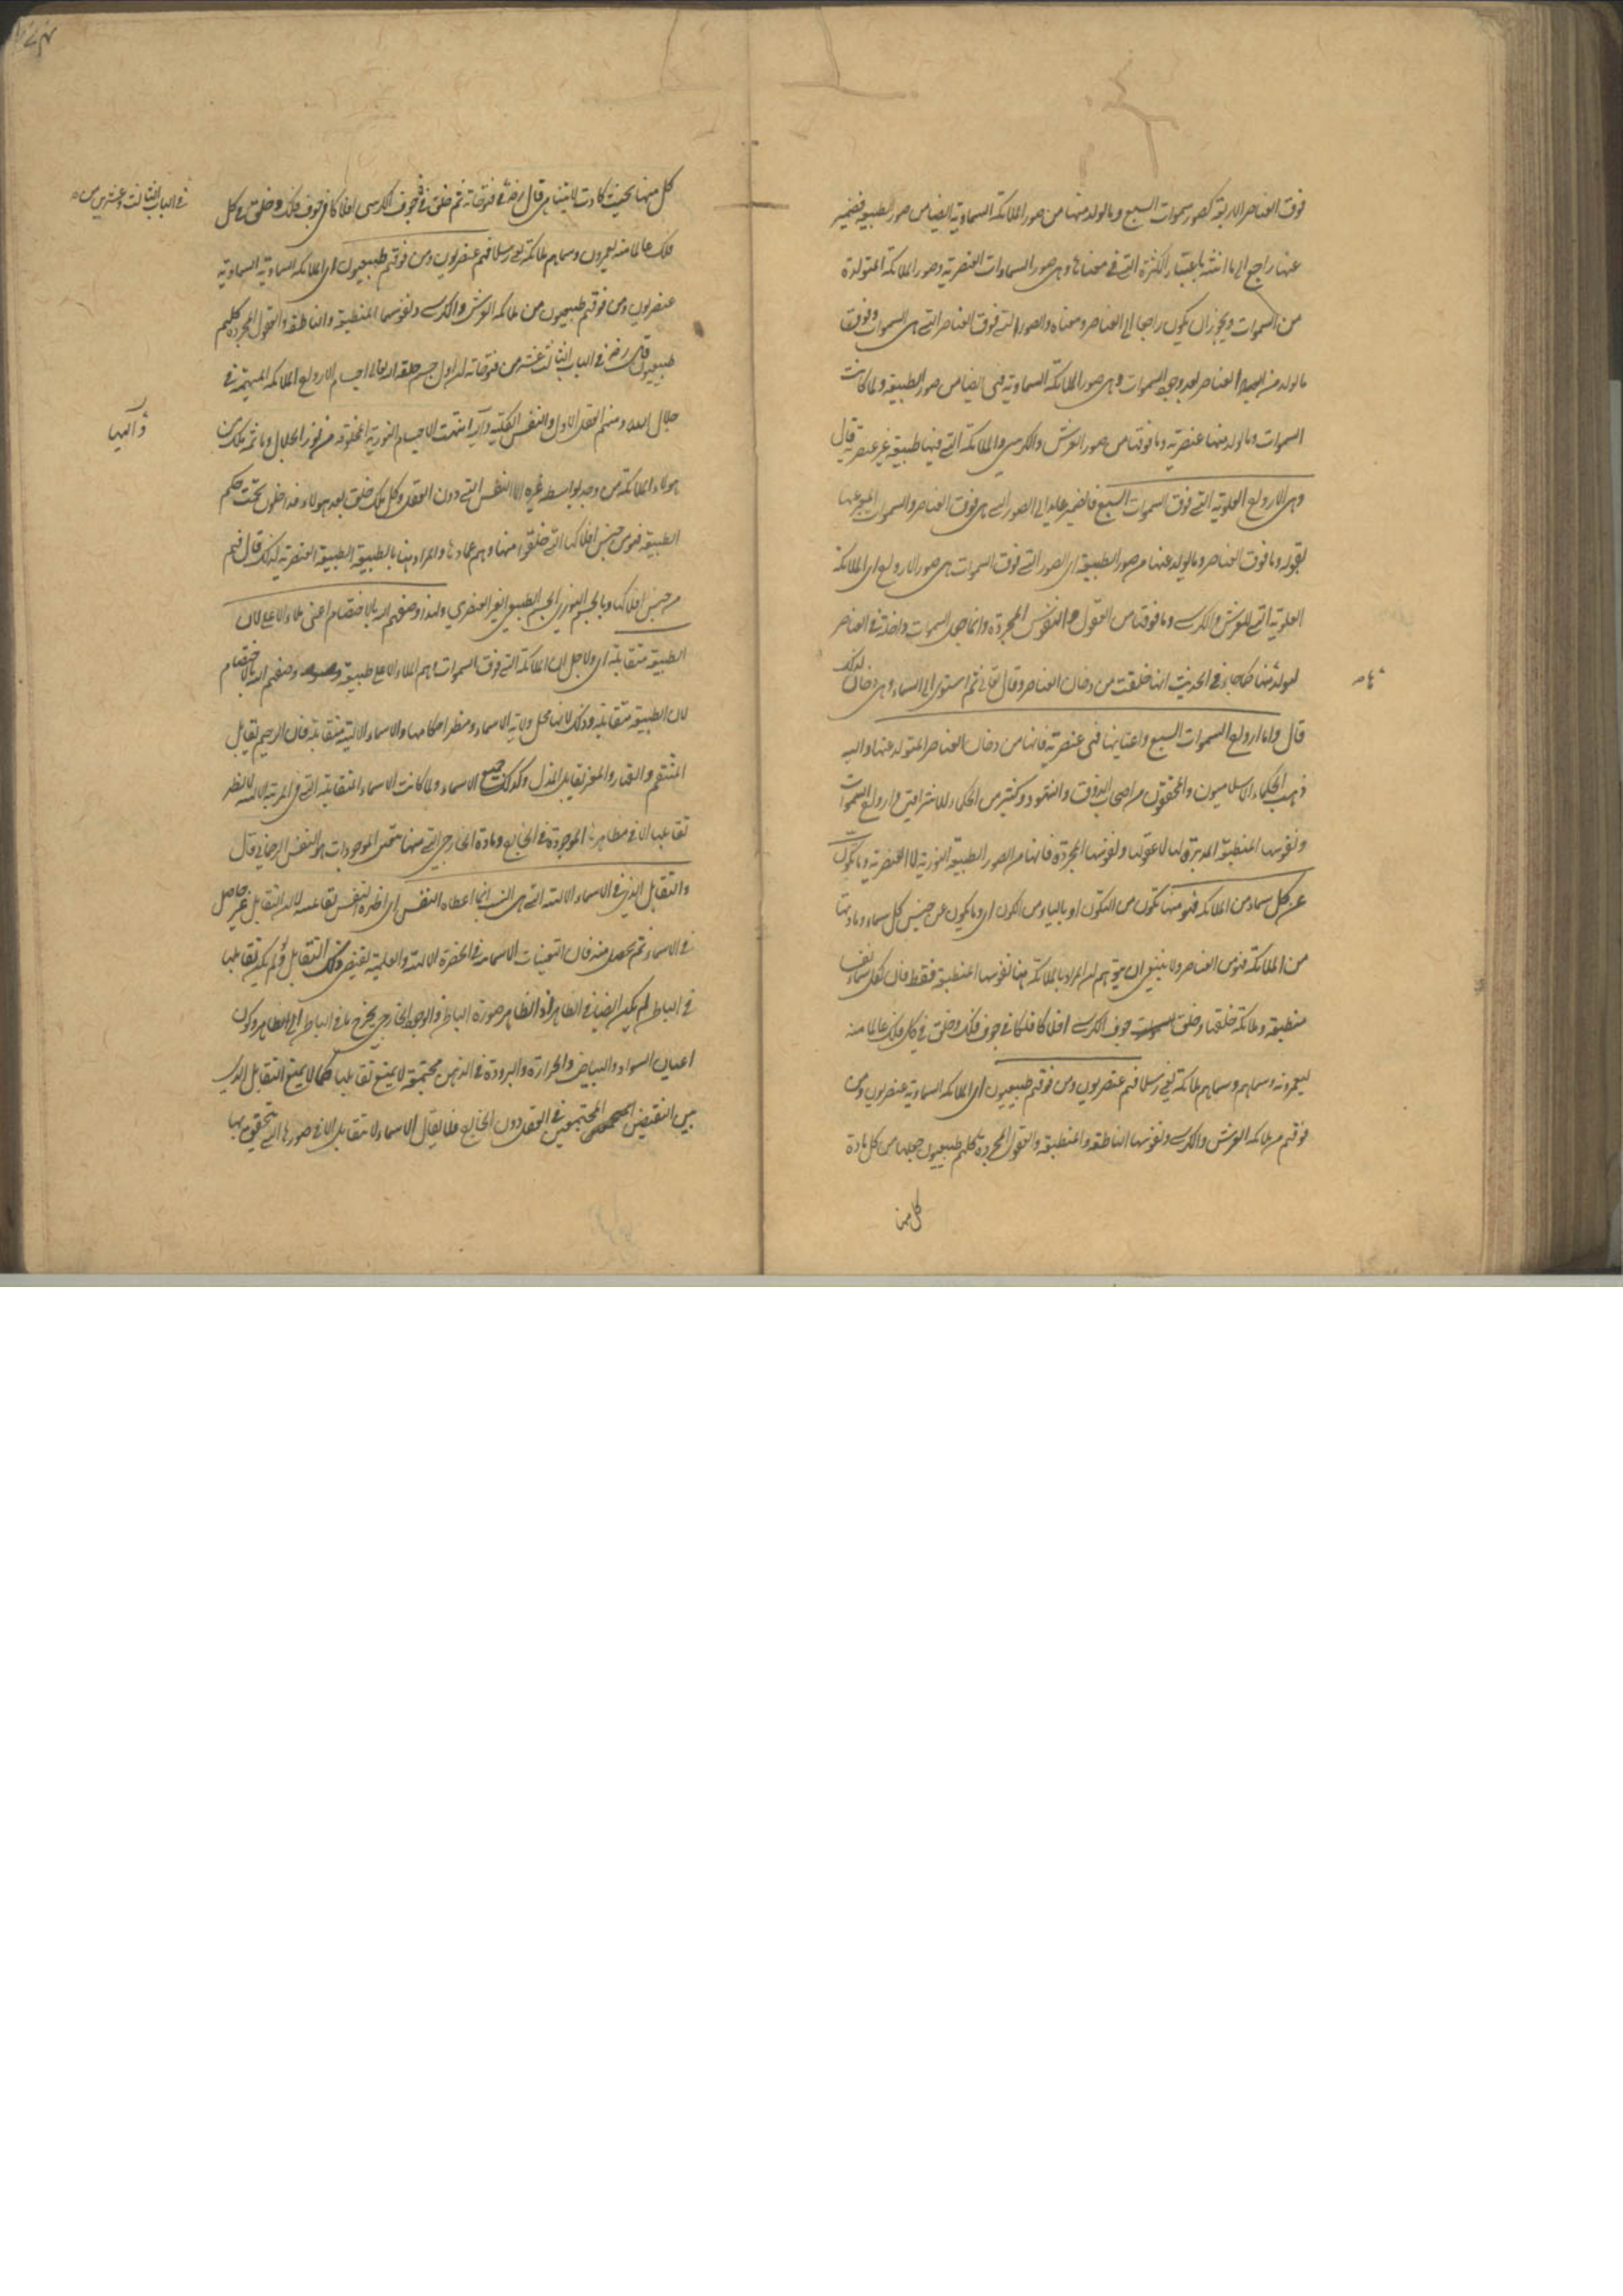 فوق العناصر الاربعة كصور سموات السبع وما تولد منها من صور الملائكة السماوية ايضا من صور الطبيعة فضمير
عنها راجع الى ما انثه باعتبار الكثرة التي في معناها وهي صور السماوات العنصرية وصور الملائكة المتولدة
من السموات ويجوز ان يكون راجعا الى العناصر ومعناه والصور التي فوق العناصر التي هي السموات وفوق
ما تولد من العناصر بعد وجود السموات وهي صور الملائكة السماوية فهي ايضا من صور الطبيعة ولما كانت
السموات وما تولد منها عنصرية وما فوقها من صور العرش والكرسي والملائكة التي فيها طبيعة غير عنصرية قال
وهي الارواح العلوية التي فوق السموات السبع فالضمير عايد الى الصور التي هي فوق العناصر والسموات المعبر عنها
بقوله وما فوق العناصر وما تولد عنها من صور الطبيعة اي الصور التي فوق السموات هي صور الارواح اي الملائكة
العلوية التي للعرش والكرسي وما فوقها من العقول والنفوس المجردة وانما جعل السموات داخلة في العناصر
لتولدها منها كما جاء في الحديث انها خلقت من دخان العناصر وقال تعالى ثم استوى الى السماء وهي دخان لذلك
قال واما ارواح السموات السبع واعيانها فهي عنصرية فانها من دخان العناصر المتولد عنها واليه
ذهب الحكماء الاسلاميون والمحققون من اصحاب الذوق والشهود وكثير من الحكماء الاشراقيين وارواح السموات
ونفوسها المنطبعة المدبرة لها لا عقولها ونفوسها المجردة فانها من الصور الطبيعة النورية لا العنصرية وما تكون
عن كل سماء من الملائكة فهو منها تكون من التكون او بالياء من الكون اي وما يكون عن جنس كل سماء ومادتها
من الملائكة فهو من العناصر ولا ينبغي ان يتوهم ان المراد بالملائكة هنا نفوسها المنطبعة فقط فان لكل سماء نفسا
منطبعة وملائكة خلقها وخلق جوف الكرسي افلاكا فلكا في جوف فلك وخلق في كل فلك عالما منه
يعمرونه وسماهم ملائكة يعني رسلا فهم عنصريون ومن فوقهم طبيعيون اي الملائكة السماوية عنصريون ومن
فوقهم من ملائكة العرش والكرسي ونفوسها الناطقة والمنطبعة والعقول المجردة كلهم طبيعيون جعلها من كل مادة
كل منها
كل منها بحيث كادت لا يتناهى قال رضي في فتوحاته ثم خلق في جوف الكرسي افلاكا في جوف فلك وخلق في كل
فلك عالما منه يعمرون وسماهم ملائكة يعني رسلا فهم عنصريون ومن فوقهم طبيعيون اي الملائكة السماوية السماوية
عنصريون ومن فوقهم طبيعيون من ملائكة العرش والكرسي ونفوسها المنطبعة والناطقة والعقول المجردة كلهم
طبيعيون قال رضي في الباب الثالث عشر من فتوحاته ان اول جسم خلقه الله تعالى اجسام الارواح الملائكة المهيمة في
جلال الله ومنهم العقل الاول والنفس الكلية واليها انتهت الاجسام النورية المخلوقة من نور الجلال وما ثم ملك من
هولاء الملائكة من وجد بواسطة غيره الا النفس التي دون العقل وكل ملك خلق بعد هولاء فداخلون تحت حكم
الطبيعة فهو من جنس افلاكها التي خلقوا منها وهم عمارها والمراد هنا بالطبيعة الطبيعة العنصرية لذلك قال فهم
من جنس افلاكها وبالجسم النوري الجسم الطبيعي الغير العنصري ولهذا وصفهم الله بالاختصام اعني ملاء الاعلى لان
الطبيعة متقابلة اي ولاجل ان الملائكة التي فوق السموات وهم الملاء الاعلى طبيعة وصفهم الله بالاختصام
لان الطبيعة متقابلة وذلك لانها محل ولاية الاسماء ومظهر احكامها والاسماء الالهية متقابلة فان الرحيم يقابل
المنتقم والقهار والمعز يقابل المذل وكذلك جميع الاسماء ولما كانت الاسماء المتقابلة التي في المرتبة الالهية لا يظهر
تقابلها الا في مظاهرها الموجودة في الخارج ومادة الخارج التي منها يتحقق الموجودات هو النفس الرحماني قال
والتقابل الذي في الاسماء الالهية التي هي النسب انما اعطاه النفس اي اظهره النفس لا ان التقابل غير حاصل
في الاسماء ثم يحصل منه فان التعينات الاسمائية في الحضرة الالهية والعلمية يقتضي ذلك التقابل ولو لم يكن تقابلها
في الباطن لم يكن ايضا في الظاهر اذ الظاهر صورة الباطن والوجود الخارجي يخرج ما في الباطن الى الظاهر وكون
اعيان السواد والبياض والحرارة والبرودة في الذهن مجتمعة لا يمنع تقابلها كما لا يمنع التقابل الذي
بين النقيضين المجتمعين في العقل دون الخارج فلا يقال الاسماء لا يتقابل الا في صورها التي يتحقق بها
في الباب الثالث وعشرين من